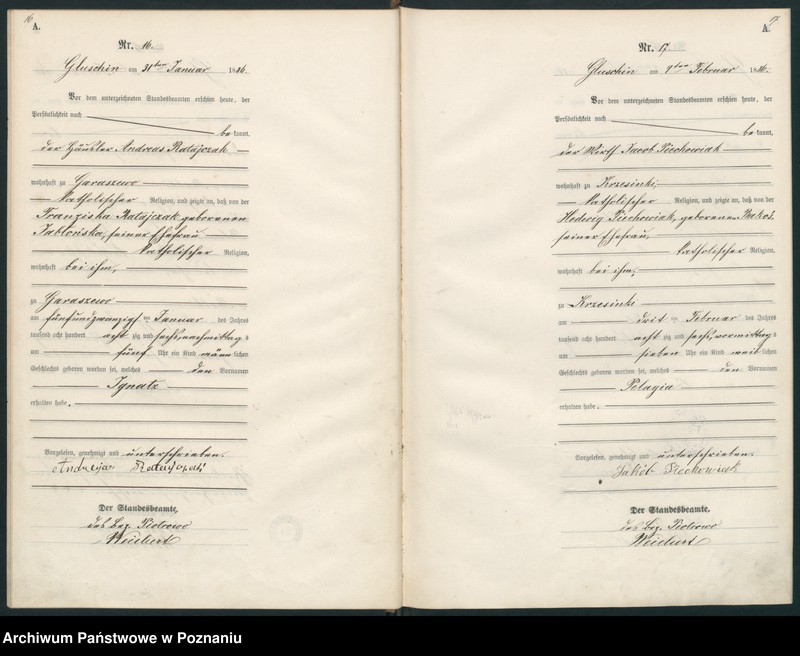 16
A.
Nr. 16.
Gluschin am 31ten Januar 1886.
Vor dem unterzeichneten Standesbeamten erschien heute, der
Persönlichkeit nach
bekannt,
der Häusler Andreas Ratajczak
wohnhaft zu Garaszewo
katholischer Religion, und zeigte an, daß von der
Franziska Ratajczak geborenen
Jablońska, seiner Ehefrau
katholischer Religion,
wohnhaft bei ihm,
zu Garaszewo
am fünfundzwanzigst en Januar des Jahres
tausend acht hundert acht zig und sechs, nachmittags
um fünf Uhr ein Kind männlichen
Geschlechts geboren worden sei, welches den Vornamen
Ignatz
erhalten habe.
Vorgelesen, genehmigt und unterschrieben.
Andrzej Ratajczak
Der Standesbeamte.
des Bez. Piotrowo
Weichert
17
A.
Nr. 17.
Gluschin am 9ten Februar 1886.
Vor dem unterzeichneten Standesbeamten erschien heute, der
Persönlichkeit nach
bekannt,
der Wirth Jacob Piechowiak
wohnhaft zu Krzesinki,
katholischer Religion, und zeigte an, daß von der
Hedwig Piechowiak, geborenen
seiner Ehefrau,
katholischer Religion,
wohnhaft bei ihm,
zu Krzesinki
am drit en Februar des Jahres
tausend acht hundert acht zig und sechs, vormittags
um sieben Uhr ein Kind weiblichen
Geschlechts geboren worden sei, welches den Vornamen
Pelagia
erhalten habe.
Vorgelesen, genehmigt und unterschrieben.
Jakób Piechowiak
Der Standesbeamte.
des Bez. Piotrowo
Weichert
Archiwum Państwowe w Poznaniu